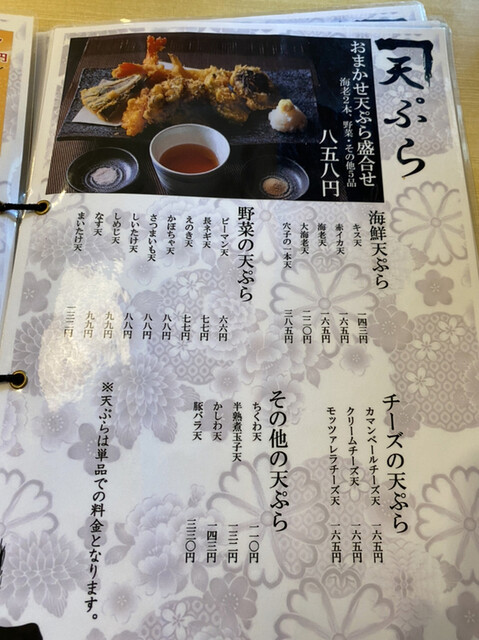 天ぷら
おまかせ天ぷら盛合せ
海老2本 野菜・その他5品
八五八円
海鮮天ぷら
キス天 一四三円
赤イカ天 一六五円
海老天 一六五円
大海老天 二二〇円
穴子の一本天 三八五円
野菜の天ぷら
ピーマン天 六六円
長ネギ天 七七円
えのき天 七七円
かぼちゃ天 八八円
さつまいも天 八八円
しいたけ天 八八円
しめじ天 九九円
なす天 九九円
まいたけ天 一三二円
チーズの天ぷら
カマンベールチーズ天 一六五円
クリームチーズ天 一六五円
モッツァレラチーズ天 一六五円
その他の天ぷら
ちくわ天 一一〇円
半熟煮玉子天 一三二円
かしわ天 一四三円
豚バラ天 三三〇円
※天ぷらは単品での料金となります。